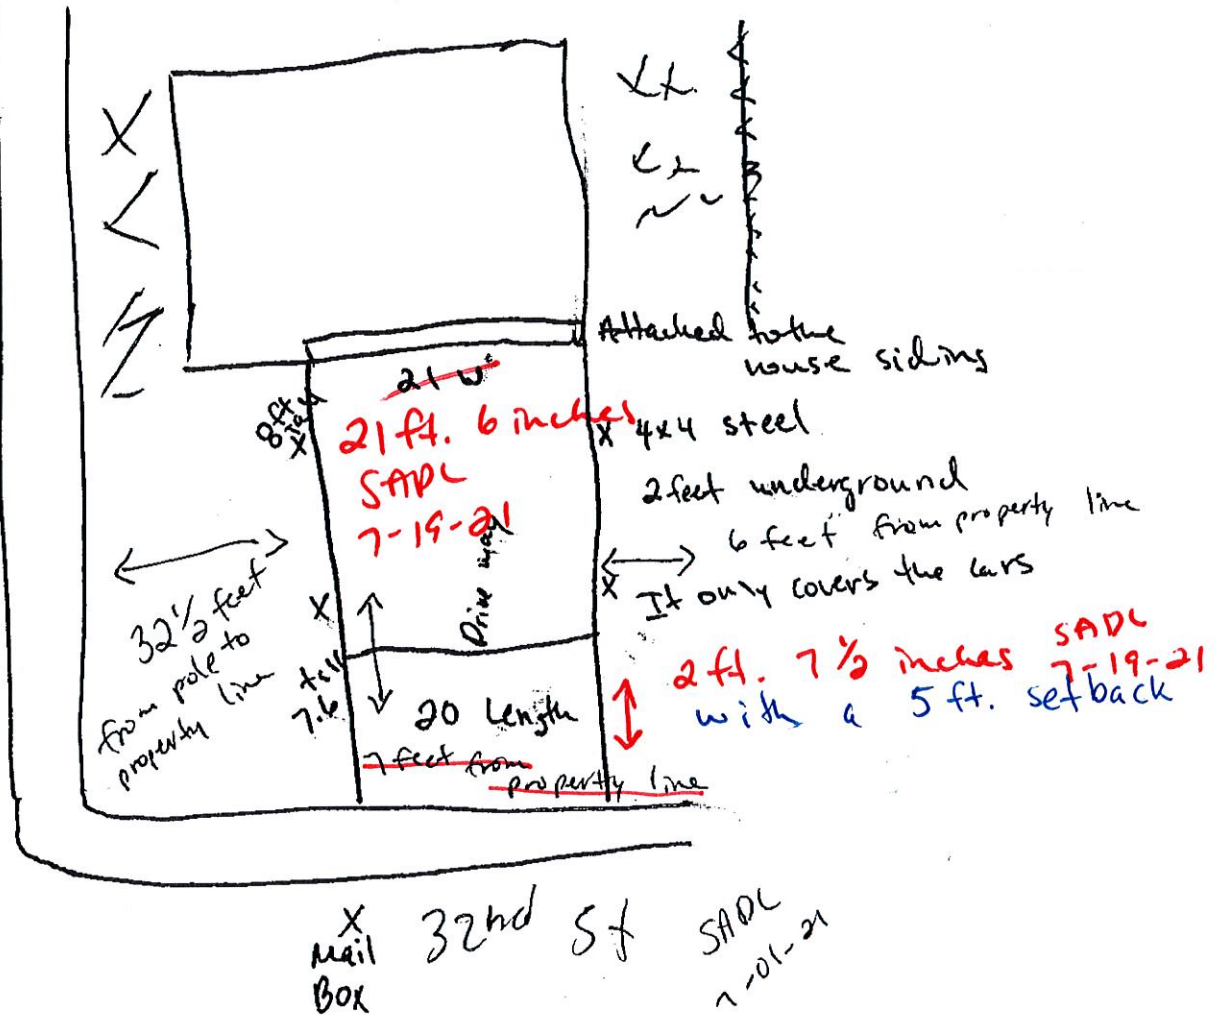 Attached to the
house siding
21 w
8ft
21 ft. 6 inches
X 4x4 steel
SADL
7-19-21
2 feet underground
6 feet from property line
X It only covers the cars
Drive way
32 1/2 feet
from pole to
property line
X
tall
7.6
20 Length
7 feet from
property line
2 ft. 7 1/2 inches SADL
7-19-21
with a 5 ft. setback
X
Mail
Box
32nd St
SADL
7-01-21